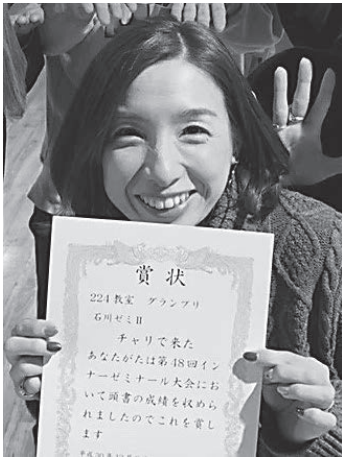 賞状
224教室 グランプリ
石川ゼミⅡ
チャリで来た
あなたがたは第48回イン
ナーゼミナール大会にお
いて頭書の成績を収めら
れましたのでこれを賞し
ます
平成30年12月